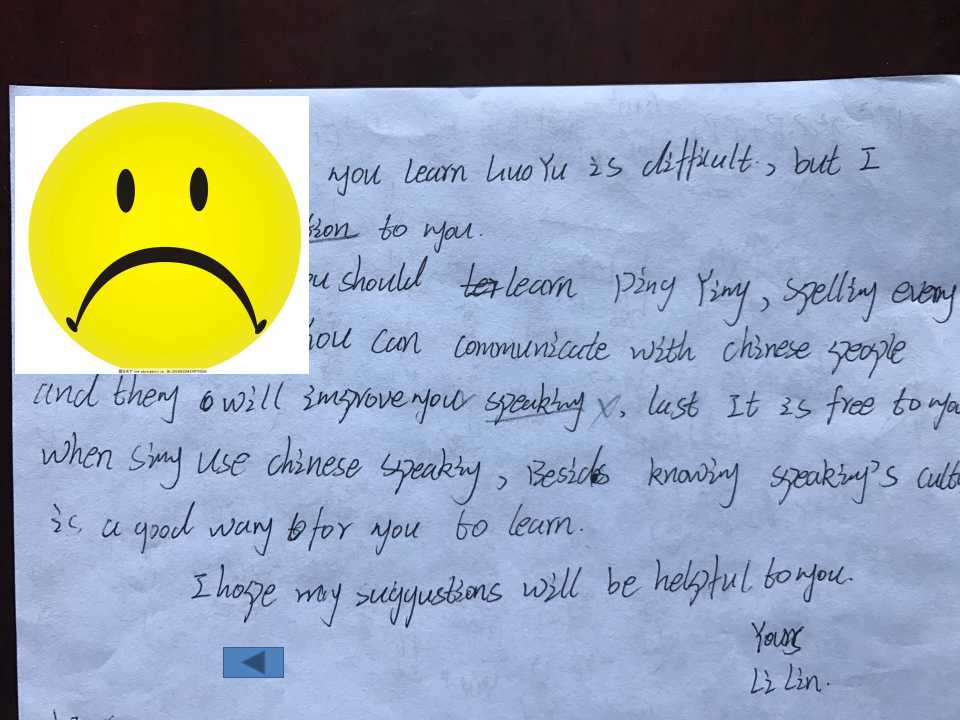 you learn HuoYu is difficult., but I
tion to you.
ou should learn Ping Ying, spelling every
You can communicate with chinese people
and they will improve your speaking X. last It is free to you
when sing use chinese speaking, Besides knowing speaking's cultu
is a good way for you to learn.
I hope my suggustions will be helpful to you.
Yours
Li Lin.